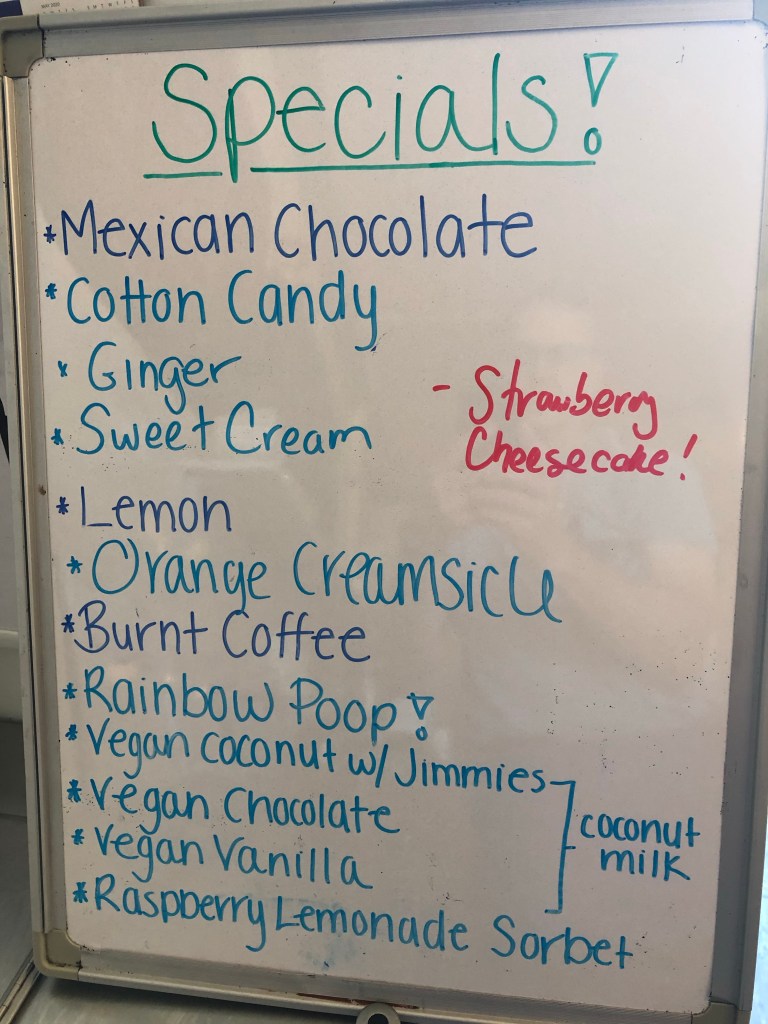 Specials!
*Mexican Chocolate
*Cotton Candy
*Ginger
*Sweet Cream
- Strawberry
Cheesecake!
*Lemon
*Orange Creamsicle
*Burnt Coffee
*Rainbow Poop!
*Vegan coconut w/ Jimmies
*Vegan Chocolate
*Vegan Vanilla
coconut
milk
*Raspberry Lemonade Sorbet